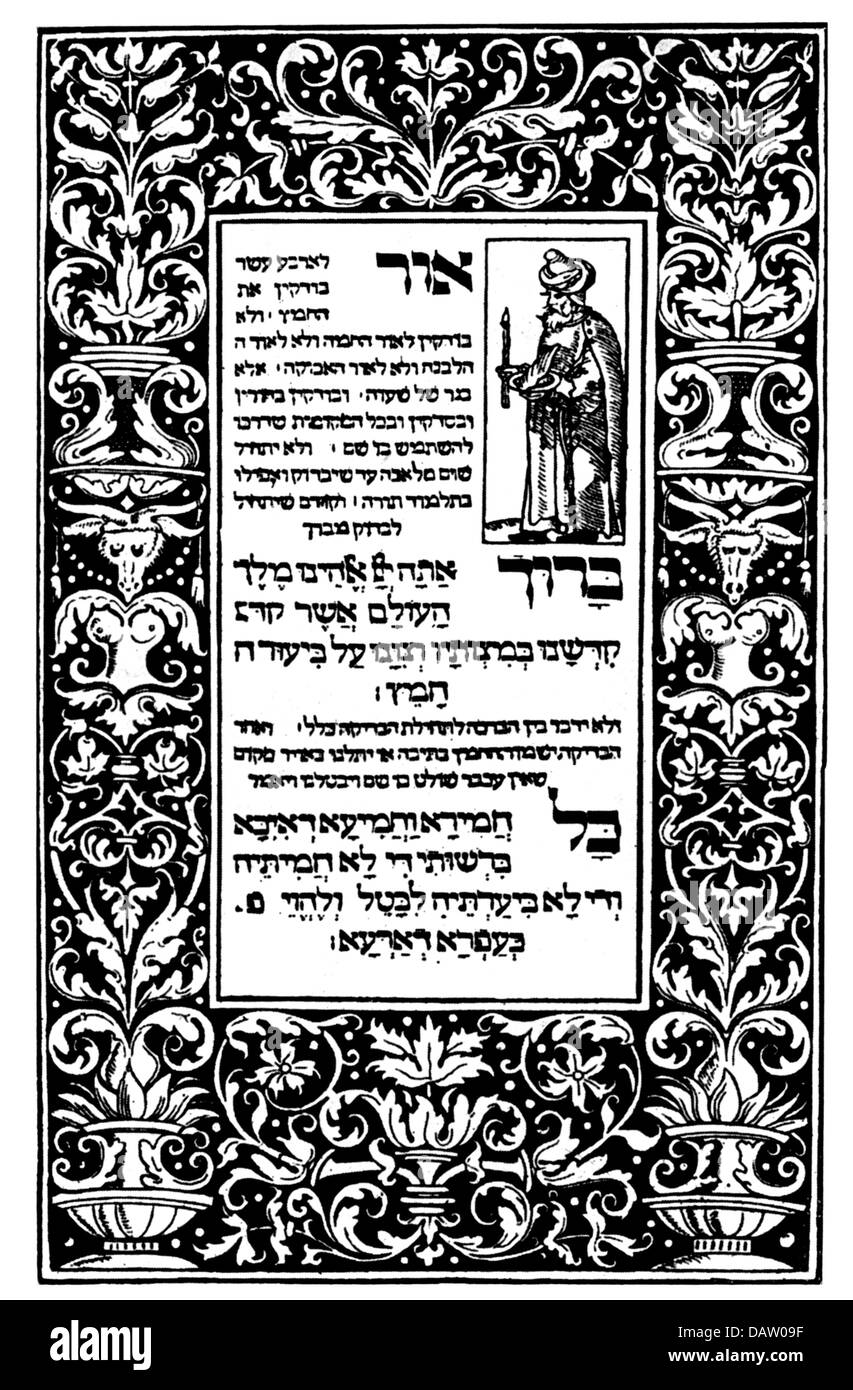 אור לארבע עשר
בודקין את
החמץ · ולא
בודקין לאור החמה ולא לאור ה
הלבנה ולא לאור האבוקה · אלא
בנר של שעוה · ובודקין בחורין
ובסדקין ובכל המקומות שדרכו
להשתמש בו שם · ולא יתחיל
שום מלאכה עד שיבדוק ואפילו
בתלמוד תורה · וקודם שיתחיל
לבדוק מברך
בָּרוּךְ אַתָּה יְיָ אֱלֹהֵינוּ מֶלֶךְ
הָעוֹלָם אֲשֶׁר קד
קִדְּשָׁנוּ בְּמִצְוֹתָיו וְצִוָּנוּ עַל בִּיעוּר ח
חָמֵץ :
ולא ידבר בין הברכה לתחילת הבדיקה כלל · ואחר
הבדיקה ישמור החמץ בתיבה או יתלנו באויר מקום
שאין עכבר שולט בו שם ויבטלנו ויאמר
כָּל חֲמִירָא וַחֲמִיעָא דְּאִיכָּא
בִּרְשׁוּתִי דִּי לָא חֲמִיתֵּיהּ
וְדִי לָא בִּיעַרְתֵּיהּ לִבָּטֵל וְלֶהֱוֵי
כְּעַפְרָא דְּאַרְעָא :
alamy
a
alamy
Image ID: DAW09F
www.alamy.com